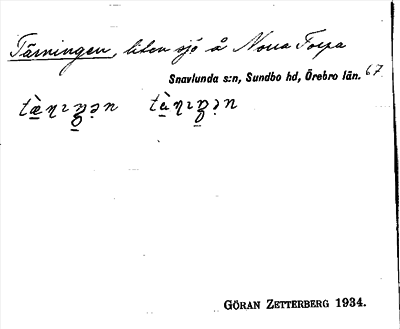 Tärningen, liten sjö å Norra Torpa
Snavlunda s:n, Sundbo hd, Örebro län. 67.
GÖRAN ZETTERBERG 1934.